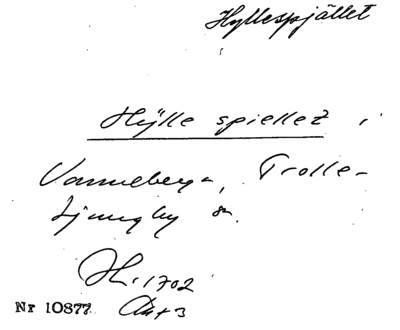 Hyllespjället
Hÿlle spiellet i
Vanneberga, Trolle-
Ljungby sn.
H. 1702
Nr 10877